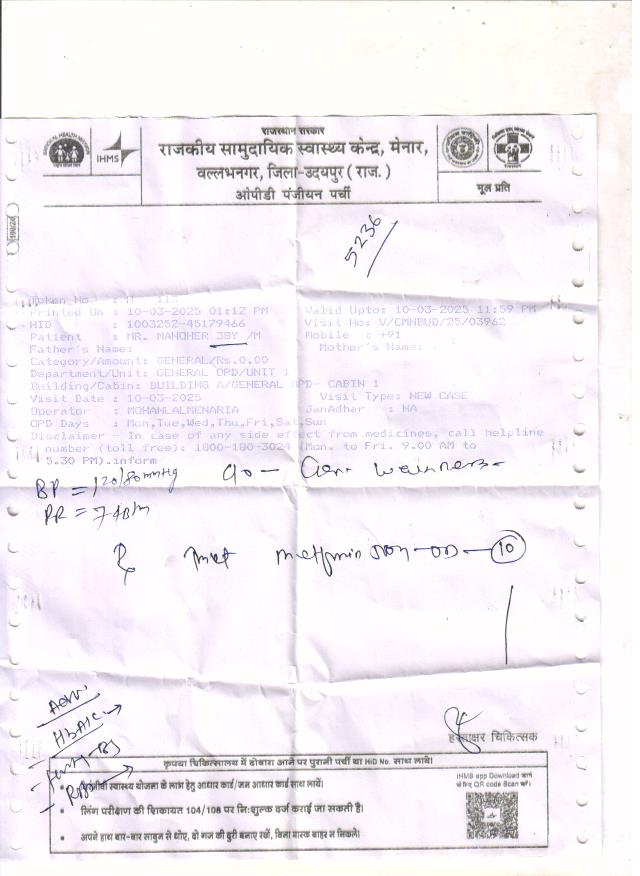 राजस्थान सरकार
राजकीय सामुदायिक स्वास्थ्य केन्द्र, मेनार,
वल्लभनगर, जिला-उदयपुर ( राज. )
ओपीडी पंजीयन पर्ची
IHMS
मूल प्रति
5236
Token No :
Printed On : 10-03-2025 01:12 PM Valid Upto: 10-03-2025 11:59 PM
HID : 1003252-45179466 Visit No: V/CMNBUD/25/03962
Patient : MR. MANOHER 38Y /M Mobile : +91
Father's Name: Mother's Name:
Category/Amount: GENERAL/Rs.0.00
Department/Unit: GENERAL OPD/UNIT 1
Building/Cabin: BUILDING A/GENERAL OPD- CABIN 1
Visit Date : 10-03-2025 Visit Type: NEW CASE
Operator : MOHANLALMENARIA JanAdhar : NA
OPD Days : Mon,Tue,Wed,Thu,Fri,Sat,Sun
Disclaimer - In case of any side effect from medicines, call helpline
number (toll free): 1800-180-3024 (Mon. to Fri. 9.00 AM to
5.30 PM).inform
BP = 120/80 mmHg c/o - Gen. weakness
PR = 74 B/m
Rx metformin 500 - OD - 10
Adv.
HBA1C
RBS
हस्ताक्षर चिकित्सक
कृपया चिकित्सालय में दोबारा आने पर पुरानी पर्ची या HID No. साथ लावें।
स्वास्थ्य योजना के लाभ हेतु आधार कार्ड/जन आधार कार्ड साथ लायें।
• लिंग परीक्षण की शिकायत 104/108 पर निःशुल्क दर्ज कराई जा सकती है।
• अपने हाथ बार-बार साबुन से धोए, दो गज की दूरी बनाए रखें, बिना मास्क बाहर न निकलें।
IHMS app Download करने
के लिए QR code Scan करें।